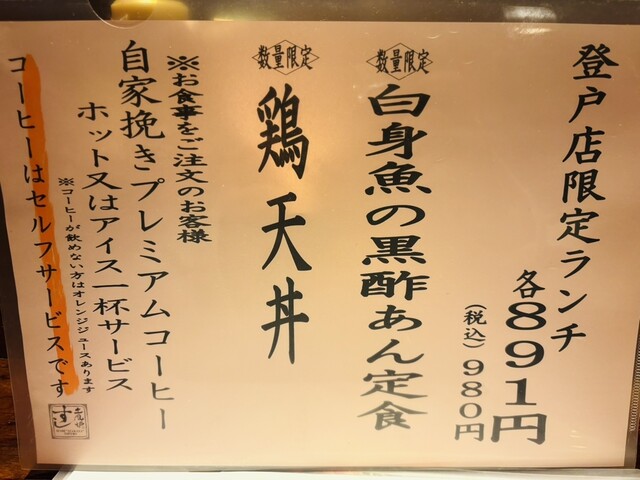 登戸店限定ランチ
各891円
(税込)980円
数量限定
白身魚の黒酢あん定食
数量限定
鶏天丼
※お食事をご注文のお客様
自家挽きプレミアムコーヒー
ホット又はアイス一杯サービス
※コーヒーが飲めない方はオレンジジュースあります
コーヒーはセルフサービスです